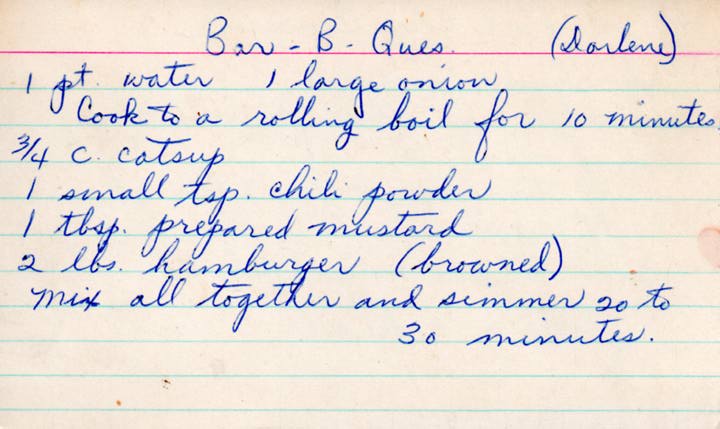 Bar-B-Ques. (Darlene)
1 pt. water 1 large onion
Cook to a rolling boil for 10 minutes.
3/4 c. catsup
1 small tsp. chili powder
1 tbsp. prepared mustard
2 lbs. hamburger (browned)
Mix all together and simmer 20 to
30 minutes.